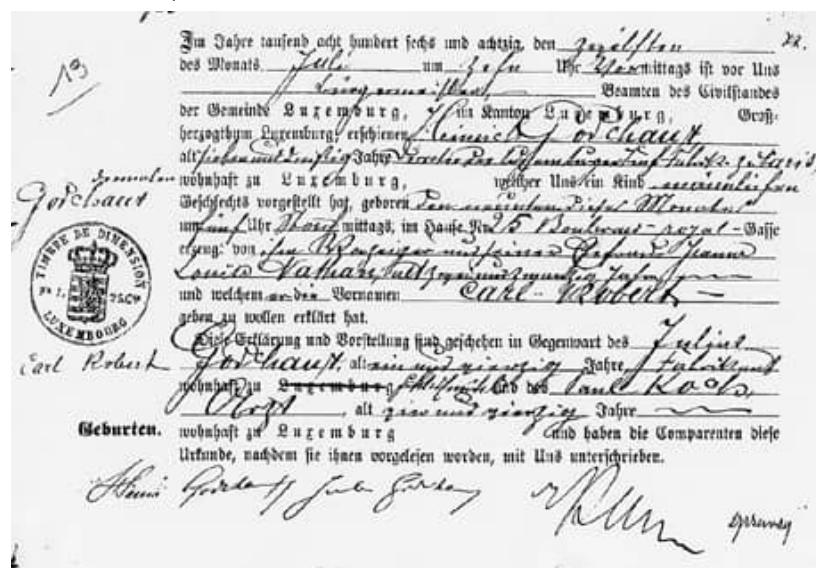 13
Im Jahre tausend acht hundert sechs und achtzig, den zwölften
des Monats Juli um zehn Uhr Vormittags ist vor Uns
Bürgermeister, Beamten des Civilstandes
der Gemeinde Luxemburg, im Kanton Luxemburg, Groß-
herzogthum Luxemburg, erschienen Heinrich Godchaux
alt sieben und dreißig Jahre Director der Luxemburger
wohnhaft zu Luxemburg, welcher Uns ein Kind männlichen
Godchaux
Geschlechts vorgestellt hat, geboren den neunten dieses Monates
um fünf Uhr mittags, im Hause Nr 25 Boulevard royal-Gasse
erzeugt von ihm Anzeiger und seiner Ehefrau Jeanne
Louise Nathan, alt zwei und zwanzig Jahre
und welchem er die Vornamen Carl-Robert
geben zu wollen erklärt hat.
TIMBRE DE DIMENSION
LUXEMBOURG
Diese Erklärung und Vorstellung sind geschehen in Gegenwart des Julius
Carl Robert
Godchaux, alt ein und vierzig Jahre, Fabrikant
wohnhaft zu Luxemburg und des Paul Koch,
Arzt, alt vier und vierzig Jahre
Geburten.
wohnhaft zu Luxemburg und haben die Comparenten diese
Urkunde, nachdem sie ihnen vorgelesen worden, mit Uns unterschrieben.
Henri Godchaux Jules Godchaux